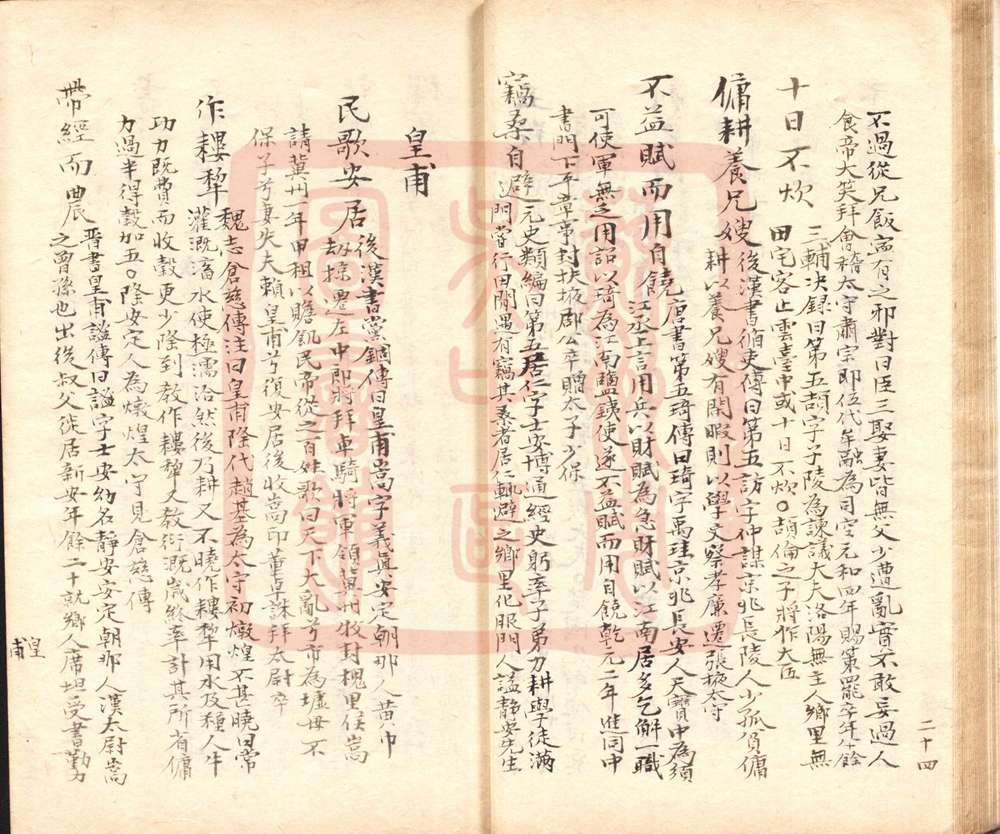 不過從兄飯寧有之邪對曰臣三娶妻皆無父少遭亂實不敢妄過人
食帝大笑拜會稽太守肅宗即位代牟融為司空元和四年賜策罷卒年八十餘
十日不炊
三輔決録曰第五頡字子陵為諫議大夫洛陽無主人鄉里無
田宅客止雲臺中或十日不炊〇頡倫之子將作大匠
傭耕養兄嫂
後漢書循吏傳曰第五訪字仲謀京兆長陵人少孤貧傭
耕以養兄嫂有閑暇則以學文察孝廉遷張掖太守
不益賦而用自饒
唐書第五琦傳曰琦字禹珪京兆長安人天寶中為須
江丞上言用兵以財賦為急財賦以江南居多乞假一職
可使軍無乏用詔以琦為江南鹽鐵使遂不益賦而用自饒乾元二年進同中
書門下平章事封扶風郡公卒贈太子少保
竊桑自避
元史類編曰第五居仁字士安博通經史躬率子弟力耕學徒滿
門嘗行田間遇有竊其桑者居仁輒避之鄉里化服門人謚靜安先生
皇甫
民歌安居
後漢書黨錮傳曰皇甫嵩字義真安定朝那人黃巾
劫掠遷左中郎將拜車騎將軍領冀州牧封槐里侯嵩
請冀州一年田租以贍飢民帝從之百姓歌曰天下大亂兮市為墟母不
保子兮妻失夫賴皇甫兮復安居後收嵩印董卓誅拜太尉卒
作耬犂
魏志倉慈傳注曰皇甫隆代趙基為太守初燉煌不甚曉田常
灌溉滀水使極濡洽然後乃耕又不曉作耬犂用水及種人牛
功力既費而收穀更少隆到教作耬犂又教衍溉歲終率計其所省傭
力過半得穀加五〇隆安定人為燉煌太守見倉慈傳
帶經而農
晉書皇甫謐傳曰謐字士安幼名靜安安定朝那人漢太尉嵩
之曾孫也出後叔父徙居新安年餘二十就鄉人席坦受書勤力
二十四
皇甫